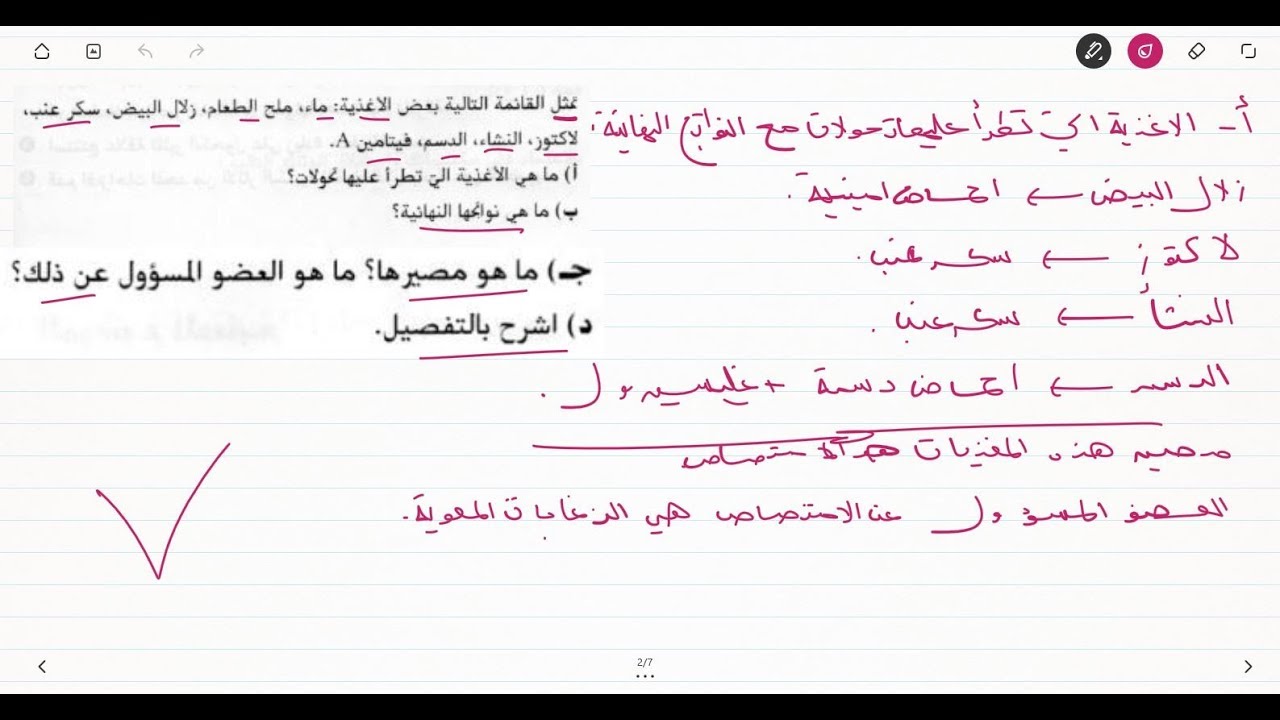 تمثل القائمة التالية بعض الأغذية: ماء، ملح الطعام، زلال البيض، سكر عنب،
لاكتوز، النشاء، الدسم، فيتامين A.
أ) ما هي الأغذية التي تطرأ عليها تحولات؟
ب) ما هي نواتجها النهائية؟
جـ) ما هو مصيرها؟ ما هو العضو المسؤول عن ذلك؟
د) اشرح بالتفصيل.
أ- الاغذية التي تطرأ عليها تحولات مع النواتج النهائية:
زلال البيض ← احماض امينية.
لاكتوز ← سكر عنب.
النشأ ← سكر عنب.
الدسم ← احماض دسمة + غليسيرول.
مصير هذه المغذيات هو الامتصاص
العضو المسؤول عن الامتصاص هي الزغابات المعوية.
2/7